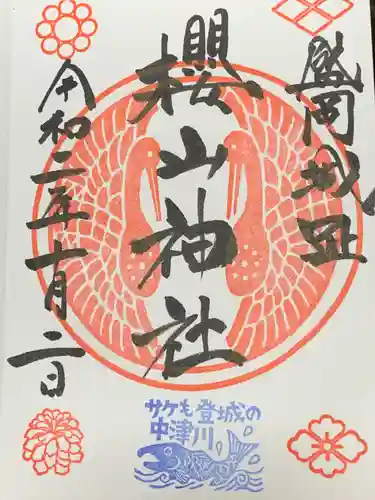 盛岡城趾
櫻山神社
令和二年十一月二日
サケも登城の
中津川